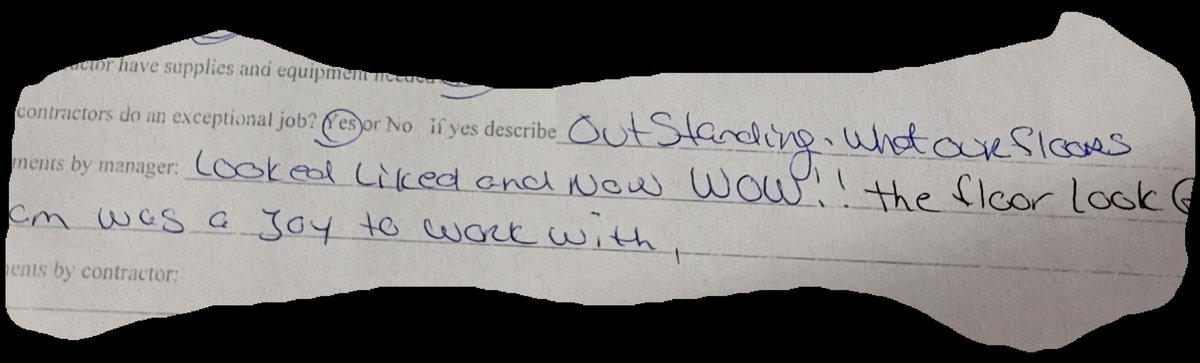 have supplies and equipment needed
contractors do an exceptional job? Yes or No if yes describe OutStanding. What our floors
ments by manager: Looked Liked and Now WOW!! the floor look
am was a Joy to work with,
ents by contractor: